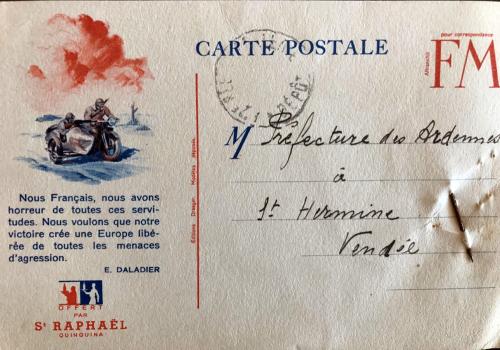 CARTE POSTALE
pour correspondance
Affranchi
FM
M Préfecture des Ardennes
à
St Hermine
Vendée
Nous Français, nous avons
horreur de toutes ces servi-
tudes. Nous voulons que notre
victoire crée une Europe libé-
rée de toutes les menaces
d'agression.
E. DALADIER
OFFERT
PAR
St RAPHAËL
QUINQUINA